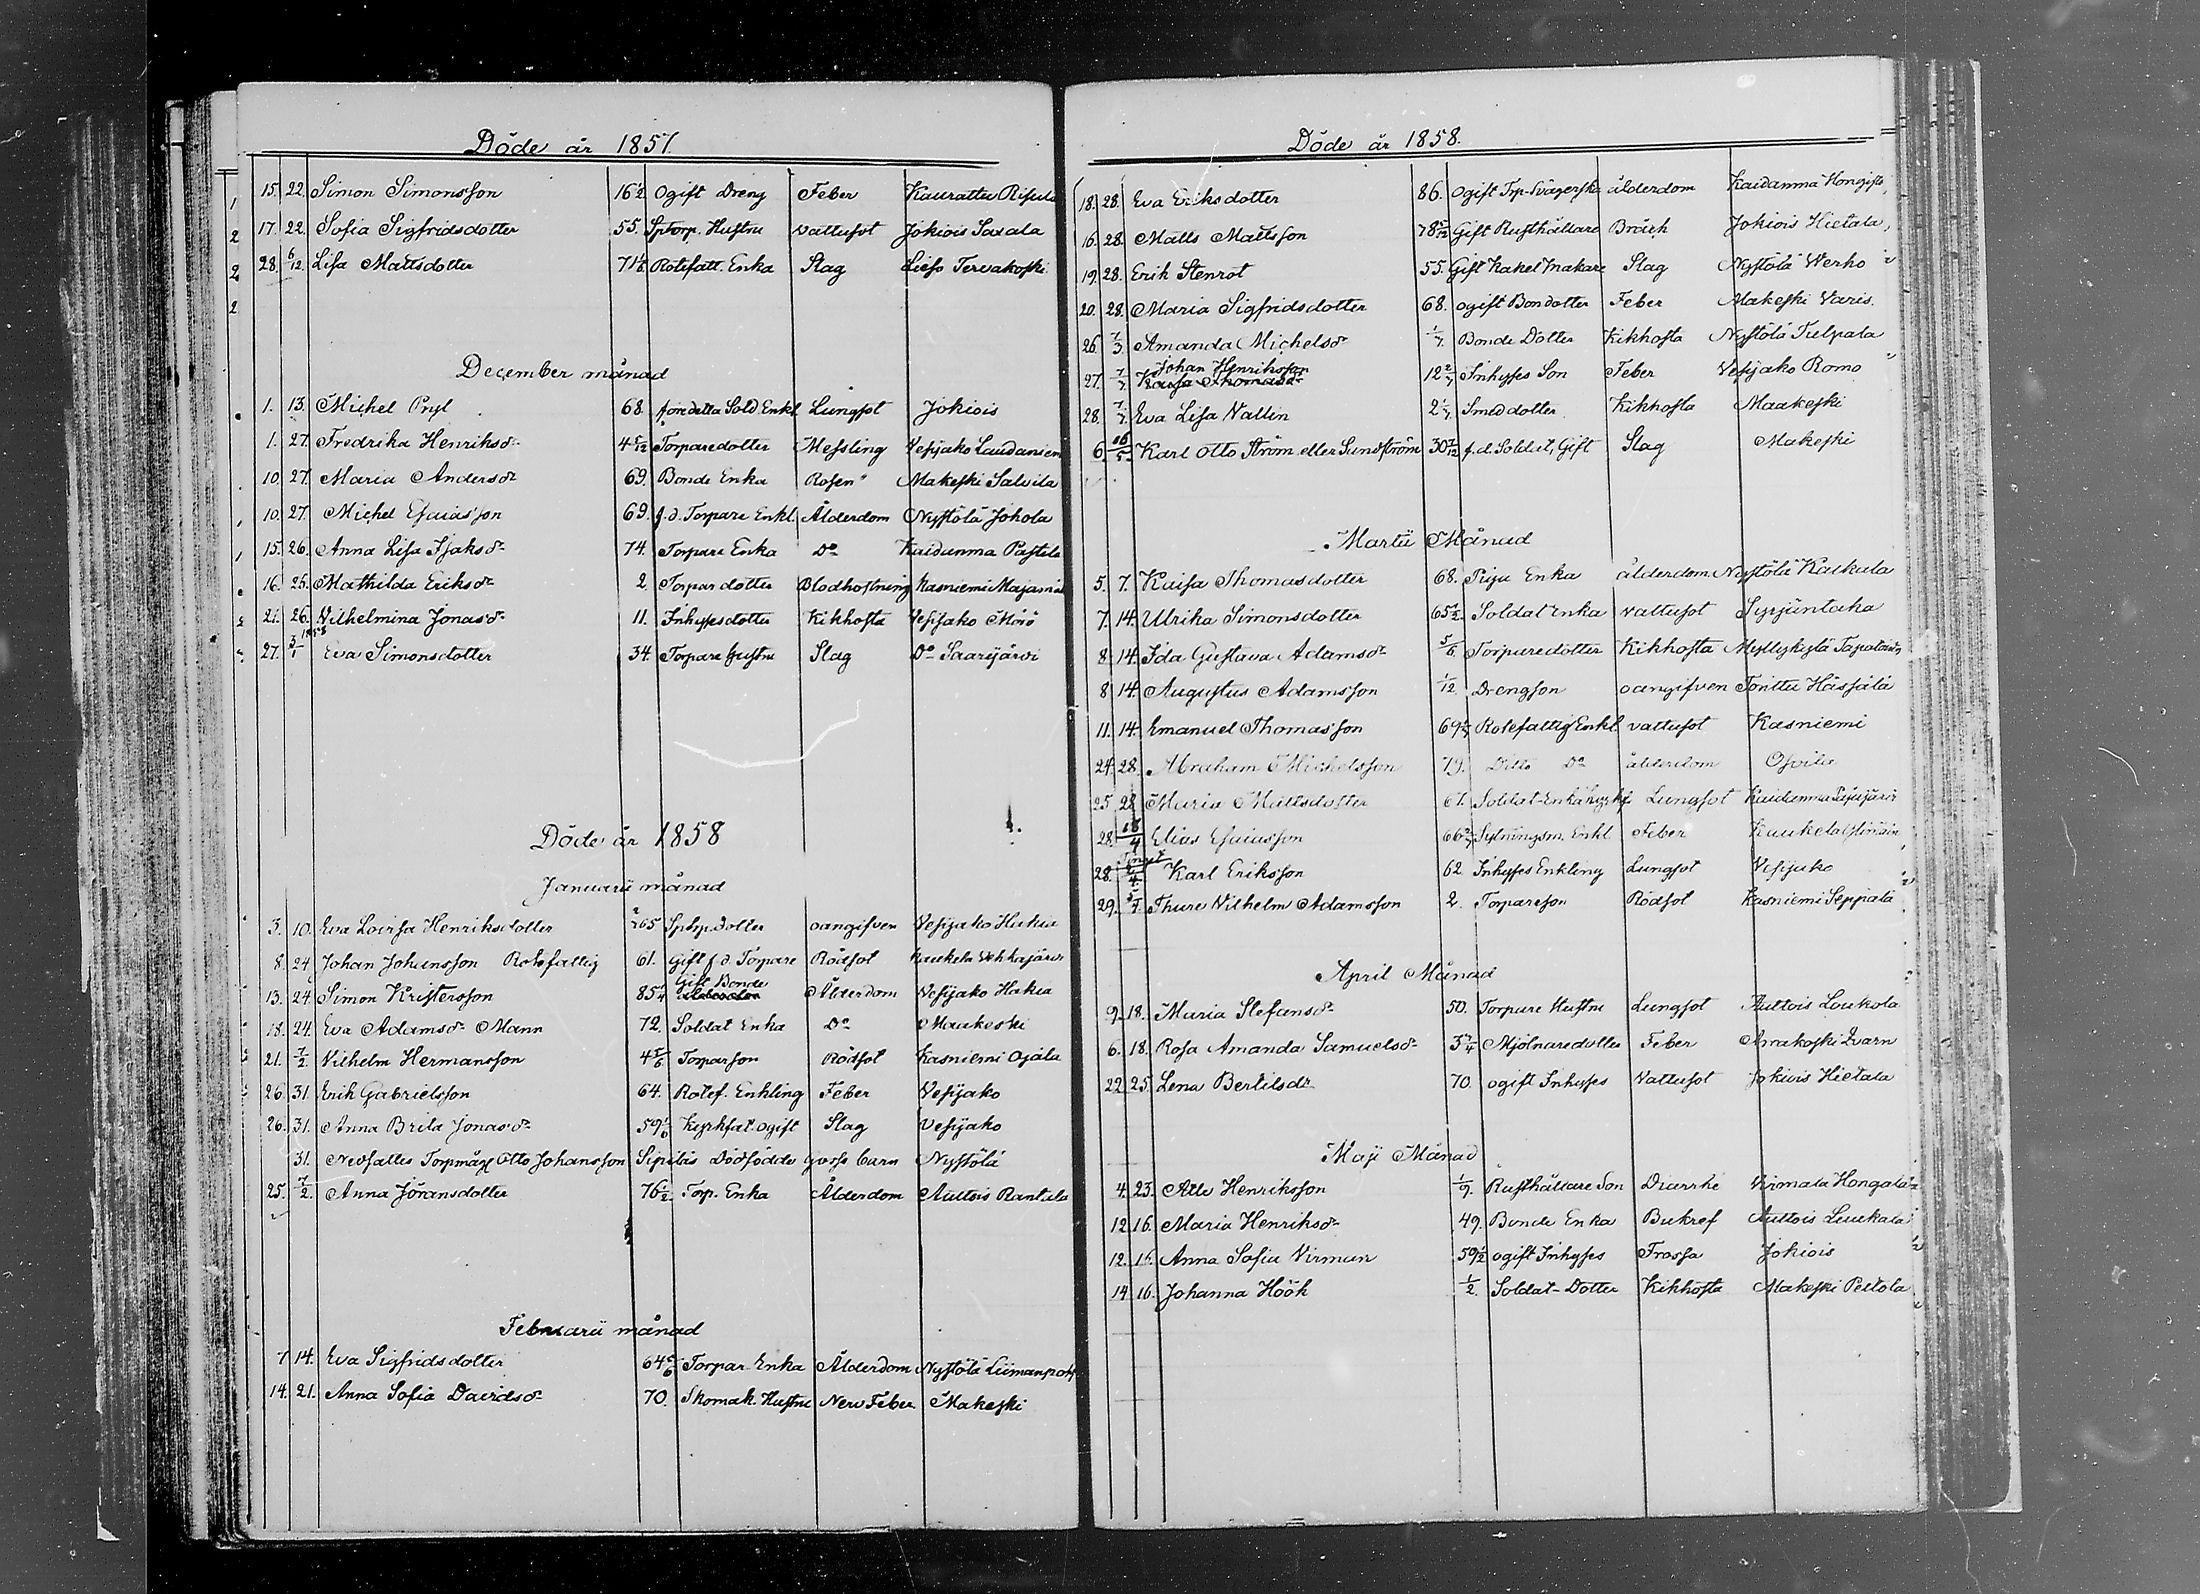 Döde år 1857.
15. 22. Simon Simonsson 16 1/2 Ogift Dreng Feber Kaurattu
17. 22. Sofia Sigfridsdotter 55. Sptorp. Hustru Vattusot Jokiois Saxala
28. 6/12. Lisa Mattsdotter 71 Rotefatt. Enka Slag Liesо Tervakoski
December månad
1. 13. Michel Pryl 68. Sold Enkl Lungsot Jokiois
1. 27. Fredrika Henriksdr 4 5/12 Torparedotter Messling Vesijako Laudaniem
10. 27. Maria Andersdr 69. Bonde Enka Rosen Makeski Salvila
10. 27. Michel Esaiasson 69. f.d. Torpare Enkl. Ålderdom Nystölä Johola
15. 26. Anna Lisa Isaksdr 74. Torpare Enka Do Kaidanma Pastila
16. 26. Mathilda Eriksdr 2. Torpardotter Blodhostning Kasniemi
21. 26. Vilhelmina Jonasdr 11. Inhysesdotter Kikhosta Vesijako
27. 3/1 1858 Eva Simonsdotter 34. Torpare hustru Slag Do Saarijärvi
Döde år 1858
Januarii månad
3. 10. Eva Lovisa Henriksdotter 65 dotter oangifven Vesijako Hakia
8. 24. Johan Johansson Rotefattig 61. Gift f.d. Torpare Rödsot Kaukela Vehkajärvi
13. 24. Simon Kristersson 85 1/4 Gift Bonde Ålderdom Vesijako Hakia
18. 24. Eva Adamsdr Mann 72. Soldat Enka Do Maakeski
21. 7/2. Vilhelm Hermansson 4 5/6 Torparson Rödsot Kasniemi Ojala
26. 31. Erik Gabrielsson 64. Rotef. Enkling Feber Vesijako
26. 31. Anna Brita Jonasdr 59 1/6 Kyrkfat. ogift Slag Vesijako
31. Otto Johansson Sipiläs Dödfödde Gosse barn Nystölä
25. 7/2. Anna Jöransdotter 76 1/2 Torp. Enka Ålderdom Auttois Rantala
Februarii månad
7 14. Eva Sigfridsdotter 64 5/6 Torpar. Enka Ålderdom Nystölä
14. 21. Anna Sofia Davidsdr 70. Skomak. Hustru Nerv Feber Makeski
Döde år 1858.
18. 28. Eva Eriksdotter 86. Ogift Trp. Svägerska ålderdom Kaidanma Hongisto
16. 28. Matts Mattsson 78 5/12 Gift Rusthållare Bråck Jokiois Hietala
19. 28. Erik Stenrot 55. Gift Kakelmakare Slag Nystölä Werho
20. 28. Maria Sigfridsdotter 68. ogift Bondotter Feber Makeski Varis.
26. 7/3. Amanda Michelsdr Bonde Dotter Kikhosta Nystölä Tulpala
Johan Henriksson
27. Kaisa Thomasdr 12 Inhyses Son Feber Vesijako Romo
28. Eva Lisa Vallin 2 Smeddotter Kikhosta Maakeski
6. 16/5. Karl Otto Ström eller Sundström 30 7/12 f.d. Soldat, Gift Slag Makeski
Martii Månad
5. 7. Kaisa Thomasdotter 68. Piga Enka ålderdom Nystölä Kaikala
7. 14. Ulrika Simonsdotter 65 1/2 Soldat Enka vattusot Syrjäntaka
8. 14. Ida Gustava Adamsdr 5/6. Torparedotter Kikhosta Myllykylä
8 14. Augustus Adamsson 1/12. Drengson oangifven Torittu Hassala
11. 14. Emanuel Thomasson 69 Rotefattig Enkl vattusot Kasniemi
24. 28. Abraham Michelsson 79. Ditto Do ålderdom Osoila
25 28 Maria Mattsdotter 67. Soldat-Enka Lungsot Kaidanma
28. 18/4 Elias Esaiasson 66 Sytningsm. Enkl Feber Kaukela
28. Karl Eriksson 62 Inhyses Enkling Lungsot Vesijako
29. Thure Vilhelm Adamsson 2. Torpareson Rödsot Kasniemi Seppälä
April Månad
9. 18. Maria Stefansdr 50. Torpare Hustru Lungsot Auttois Loukola
6. 18. Rosa Amanda Samuelsdr 3 Mjölnaredotter Feber Arrakoski Qvarn
22. 25. Lena Bertilsdr 70. ogift Inhyses Vattusot Jokiois Hietala
Maji Månad
4. 23. Atle Henriksson 1/9. Rusthållare Son Diarrhé Virmala Hongola
12 16. Maria Henriksdr 49. Bonde Enka Bukref Auttois Luukala
12. 16. Anna Sofia Virman 50 1/2 ogift Inhyses Frossa Jokiois
14. 16. Johanna Höök 1/2. Soldat-Dotter Kikhosta Makeski Peltola